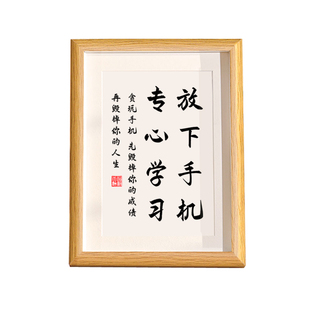 放下手机
专心学习
贪玩手机 先毁掉你的成绩
再毁掉你的人生